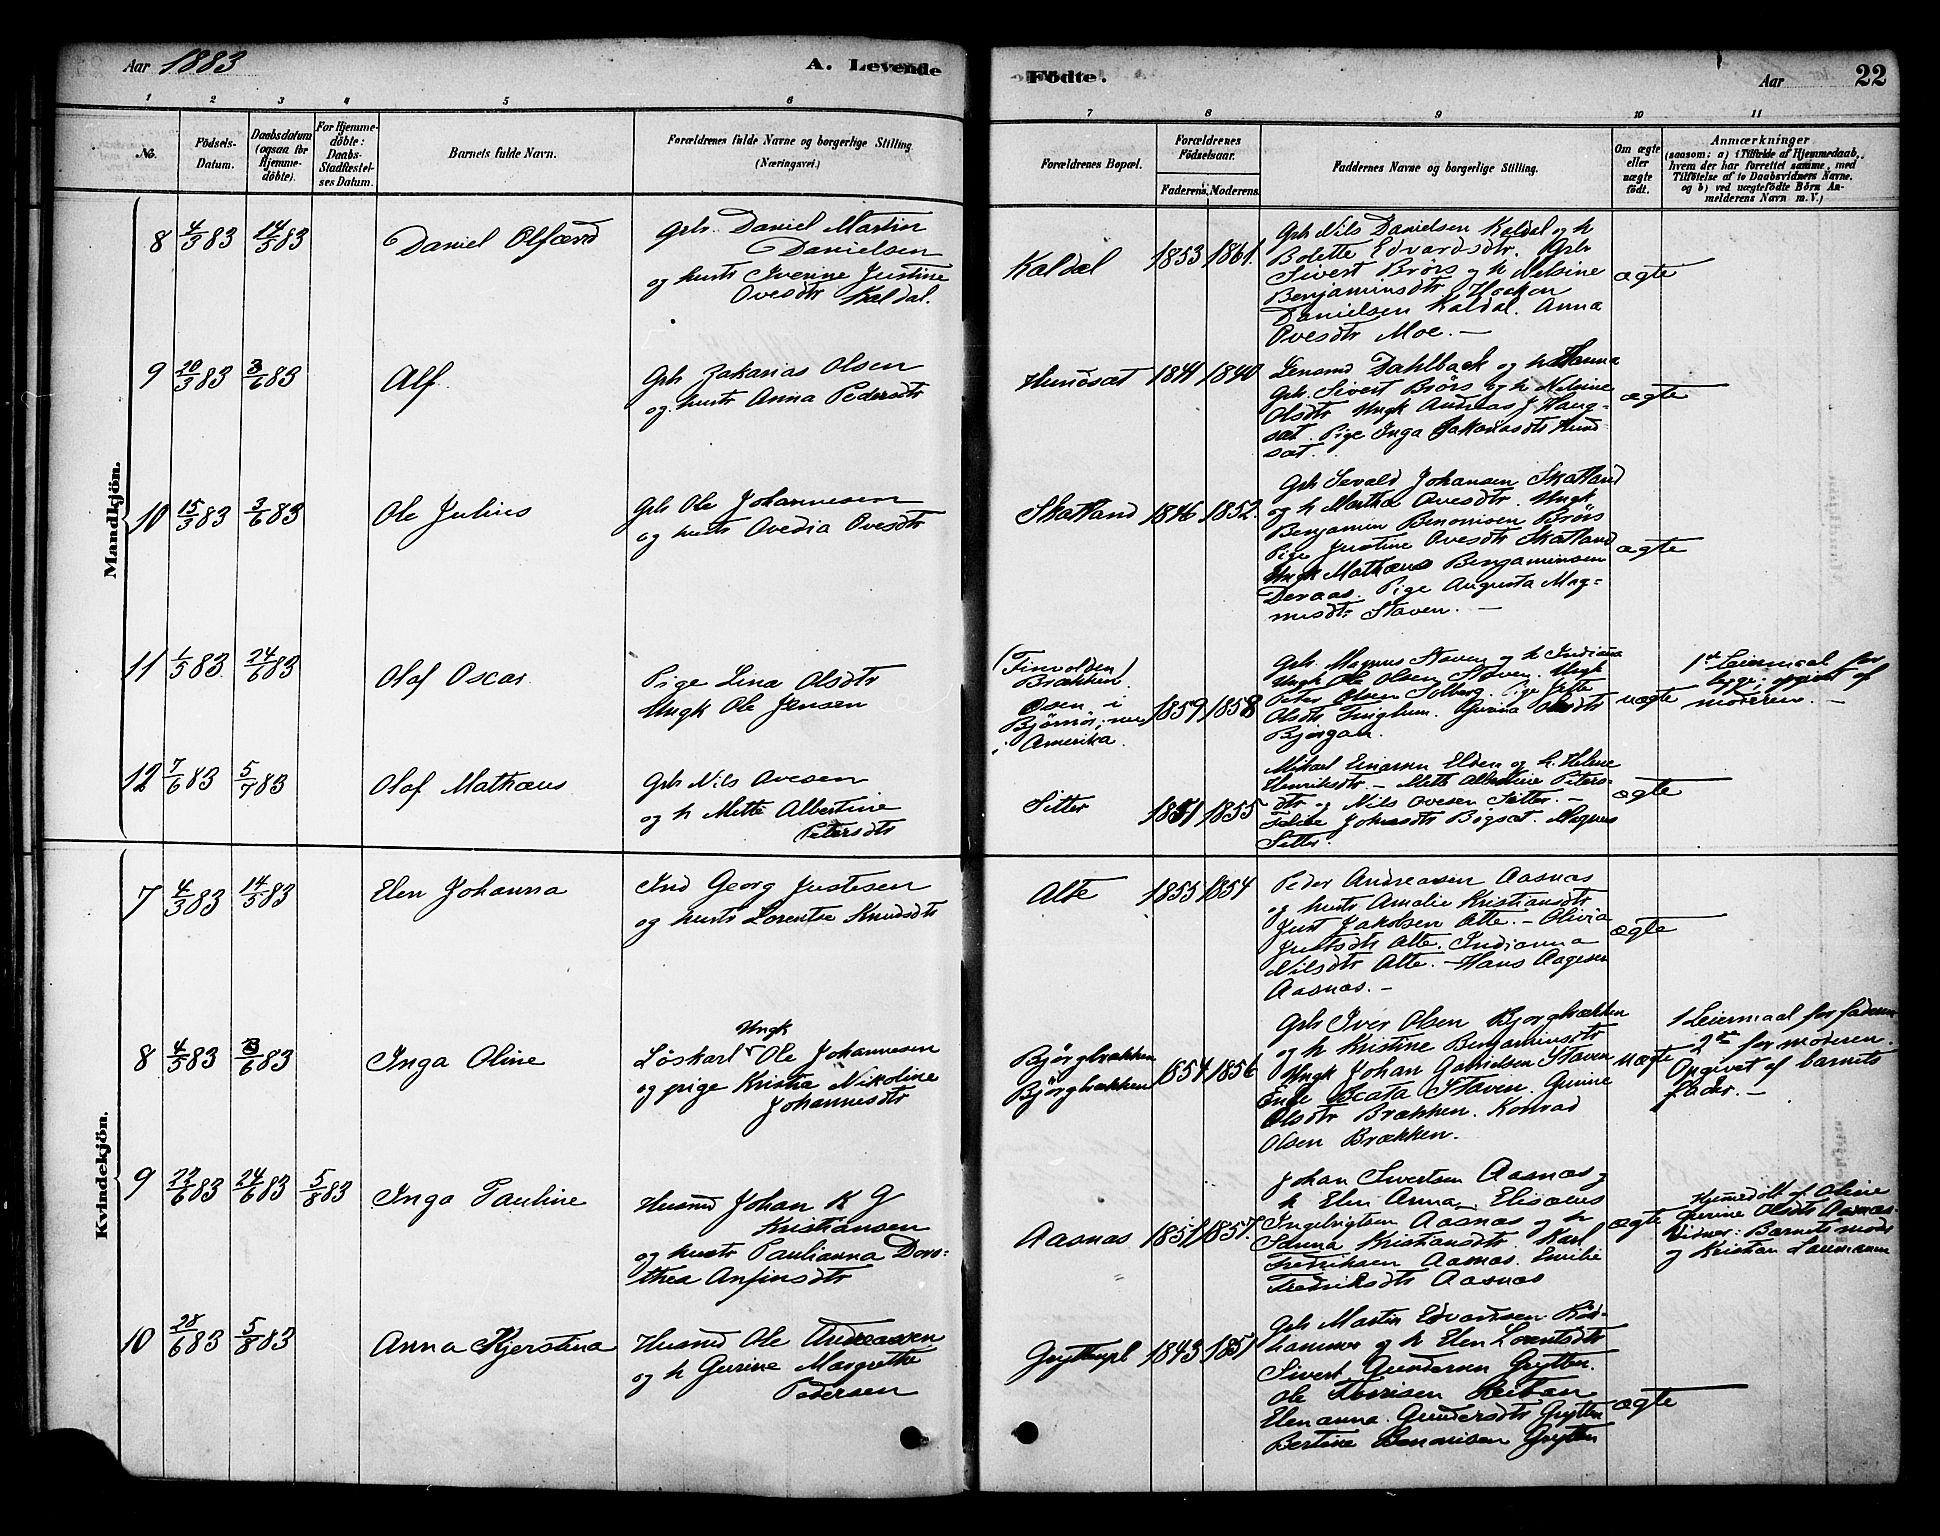 Aar 1883
A. Levende
Fødte.
Aar
22
1
2
3
4
5
6
7
8
9
10
11
No.
Fødsels-
Datum.
Daabsdatum
(ogsaa for
Hjemme-
døbte).
For Hjemme-
døbte:
Daabs-
Stadfæstel-
ses Datum.
Barnets fulde Navn.
Forældrenes fulde Navne og borgerlige Stilling.
(Næringsvei.)
Forældrenes Bopæl.
Forældrenes
Fødselsaar.
Faderens.
Moderens.
Faddernes Navne og borgerlige Stilling.
Om ægte
eller
uægte
født.
Anmærkninger
(saasom: a) i Tilfælde af Hjemmedaab,
hvem der har forrettet samme, med
Tilføielse af to Daabsvidners Navne,
og b) ved uægtefødte Børn An-
melderens Navn m. V.)
Mandkjön.
8 4/3 83 14/5 83
Daniel
Gbr. Daniel Martin
Danielsen
og hustr Iverine Justine
Ovesdtr Kaldal.
Kaldal
1853 1861.
Gbr Nils Danielsen Kaldal og h
Bolette Edvardsdtr. Gbr
Sivert Brørs og h Nelsine
Benjaminsdtr Haakon
Danielsen Kaldal. Anna
Ovesdtr Moe. —
ægte
9 20/3 83 3/6 83
Alf
Gbr Zakarias Olsen
og hustr Anna Pedersdtr
Hundsæt
1841 1840
Lensmd Dahlback og h Hanna
Gbr. Sivert Brørs og h Nelsine
Olsdtr Ungk Andreas J. Haug-
sæt. Pige Inga Zakariasdtr Hund-
sæt.
ægte
10 15/3 83 3/6 83
Ole Julius
Gbr Ole Johannesen
og hustr Ovedia Ovesdtr
Skatland
1846 1852.
Gbr Sevald Johansen Skatland
og h Martha Ovesdtr. Ungk
Benjamin Benonisen Brørs
Pige Justine Ovesdtr Skatland
Ungk Mathæus Benjaminsen
Deraas. Pige Augusta Mag-
nusdtr Staven. —
ægte
11 1/5 83 24/6 83
Olaf Oscar
Pige Lina Olsdtr
Ungk Ole Jensen
(Finvolden)
Brækken.
Osen i
Bjørnør, nu
i Amerika.
1859 1858
Gbr. Magnus Staven og h Indiana
Ungk Ole Olsen Staven. Ungk
Peter Olsen Solberg. Pige Jette
Olsdtr Finghum. Gurina Olsdtr
Bjørgan.
uægte
1ste Leiermaal for
begge; opgivet af
moderen. —
12 7/6 83 5/7 83
Olaf Mathæus
Gbr Nils Ovesen
og h Mette Albertine
Petersdtr
Sitter
1851 1855
Mikael Einarsen Elden og h. Helene
Henriksdtr. — Mette Albertine Peters-
dtr og Nils Ovesen Sitter. —
Johansdtr Bigsæt — Magnus
Sitter.
ægte
Kvindekjön.
7 4/3 83 14/5 83
Elen Johanna
Ind Georg Justesen
og hustr Lorentse Knudsdtr
Alte
1855 1854
Peder Andreasen Aasnæs
og hustr Amalie Kristiansdtr
Just Jakobsen Alte. — Olivia
Justsdtr Alte. Indianna
Nilsdtr Alte. — Hans Aagesen
Aasnæs. —
ægte
8 4/5 83 3/6 83
Inga Oline
Ungk
Løskarl Ole Johannesen
og pige Kristia Nikoline
Johannesdtr
Bjørgbrækken
Bjørgbrækken
1854 1856
Gbr Iver Olsen Bjørgbrækken
og h Kristine Benjaminsdtr
Ungk Johan Gabrielsen Staven
Enke Beata Staven. Gurine
Olsdtr Brækken. Konrad
Olsen Brækken.
uægte
1 Leiermaal for faderen
2det for moderen.
Opgivet af barnets
fader. —
9 22/6 83 24/6 83 5/8 83
Inga Pauline
Husmd Johan K G
Kristiansen
og hustr Paulianna Doro-
thea Anfinsdtr
Aasnæs
1851 1857.
Johan Sivertsen Aasnæs og
h Elen Anna. Elisæus
Ingebrigtsen Aasnæs og h
Sanna Kristiansdtr Karl
Fredriksen Aasnæs. Emilie
Fredriksdtr Aasnæs
ægte
Hjemedøbt af Oline
Gurine Olsdtr Aasnæs.
Vidner: Barnets moder
og Kristian Laumann
10 28/6 83 5/8 83
Anna Kjerstina
Husmd Ole Andreassen
og h Gurine Margrethe
Pedersen
Gryttenpl
1843 1851
Gbr Martin Edvardsen Rød-
hammer og h Elen Lorentsdtr
Sivert Gundersen Grytten.
Ole Reitan
Elenanna Gundersdtr Grytten
Bertine Benonisen Grytten
ægte